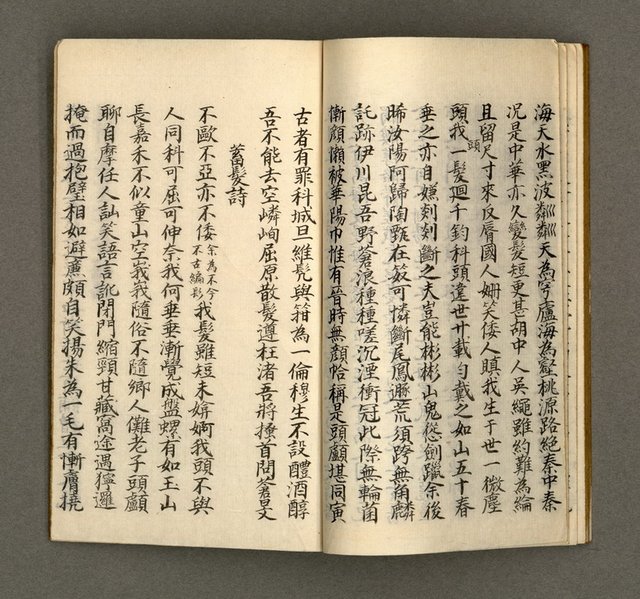 海天水黑波粼粼天為穹廬海為壑桃源路絕秦中秦
況是中華亦久變髮短更甚胡中人吳繩雖約難為綸
且留尺寸來反脣國人姍笑倭人瞋我生于世一微塵
頭我一髮迴千鈞科頭違世廿載勺戴之如山五十春
頭
垂之亦自嫌剡剡斷之夫豈能彬彬山鬼從劍躐余後
晞汝陽阿歸陶甄在笯可憐斷尾鳳遯荒須跨無角麟
託跡伊川昆吾野滄浪種種嗟沉湮衝冠此際無輪菌
慚顏懶被華陽巾惟有晉時無顏帢稱是頭顱堪同寅
古者有罪科城旦維髡與箝為一倫穆生不設醴酒醇
吾不能去空嶙峋屈原散髮遵枉渚吾將搔首問蒼旻
蓄髮詩
不歐不亞亦不倭余為不今不古編髟我髮雖短未媕婀我頭不與
人同科可屈可伸奈我何垂垂漸覺成盤螺有如玉山
長嘉禾不似童山空峩峩隨俗不隨鄉人儺老子頭顱
聊自摩任人訕笑語言訛閉門縮頸甘藏窩途遇獰邏
掩而過抱璧相如避廉頗自笑揚朱為一毛有慚膚撓